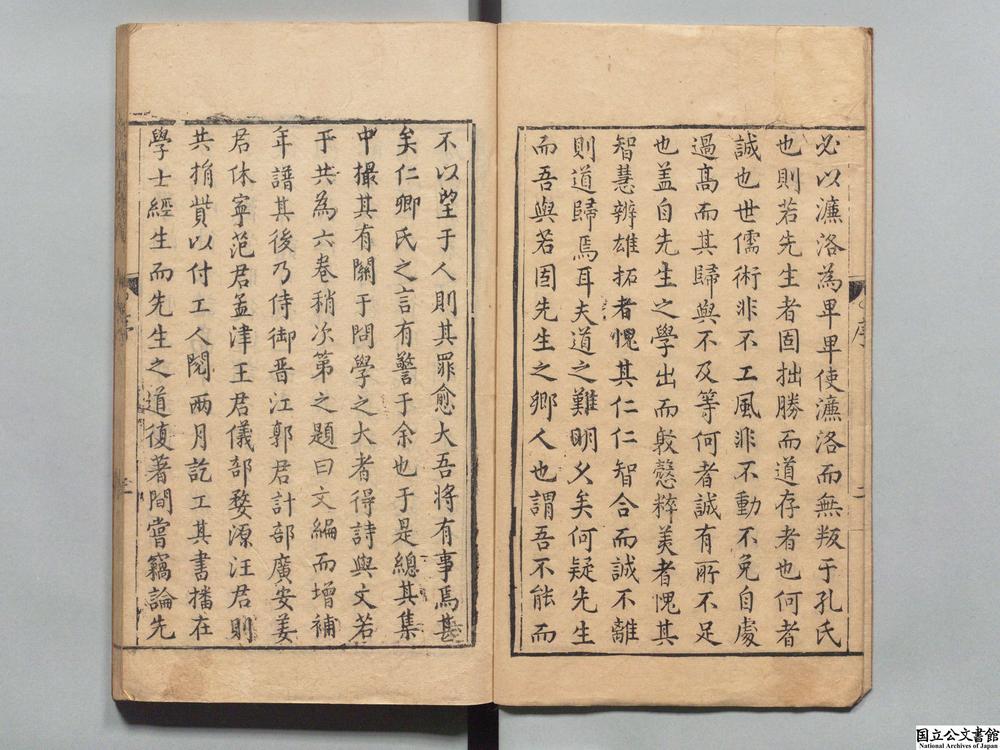 必以濂洛為卑卑使濂洛而無叛于孔氏
也則若先生者固拙勝而道存者也何者
誠也世儒術非不工風非不動不免自處
過高而其歸與不及等何者誠有所不足
也盖自先生之學出而敦慤粹美者愧其
智慧辨雄拓者愧其仁仁智合而誠不離
則道歸焉耳夫道之難明久矣何疑先生
而吾與若固先生之鄉人也謂吾不能而
序
二
不以望于人則其罪愈大吾將有事焉甚
矣仁卿氏之言有警于余也于是總其集
中撮其有關于問學之大者得詩與文若
于共為六卷稍次第之題曰文編而增補
年譜其後乃侍御晋江郭君計部廣安姜
君休寧范君孟津王君儀部婺源汪君則
共捐貲以付工人閱兩月訖工其書播在
學士經生而先生之道復著間嘗竊論先
序
三
国立公文書館
National Archives of Japan